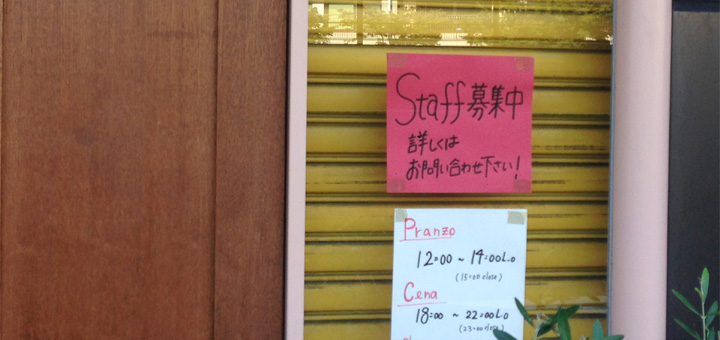 Staff募集中
詳しくは
お問い合わせ下さい!
Pranzo
12:00 ~ 14:00L.o
(15:00 close)
Cena
18:00 ~ 22:00L.o
(23:00close)